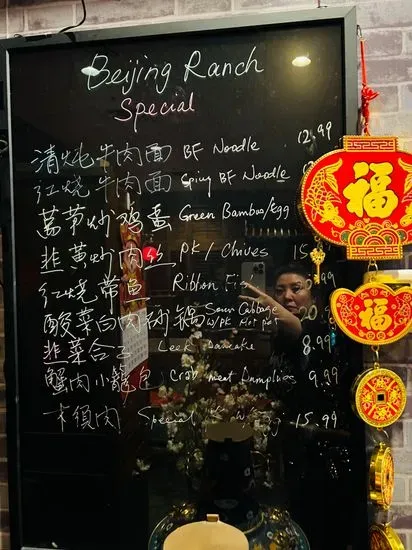 Beijing Ranch
Special
清炖牛肉面 BF Noodle 12.99
红烧牛肉面 Spicy BF Noodle
莴笋炒鸡蛋 Green Bamboo/Egg
韭黄炒肉丝 PK / Chives
红烧带鱼 Ribbon
酸菜白肉砂锅 Sour Cabbage
W/PK Hot Pot
韭菜合子 Leek Pancake 8.99
蟹肉小籠包 Crab meat Dumplings 9.99
木須肉 Special 15.99
福
福